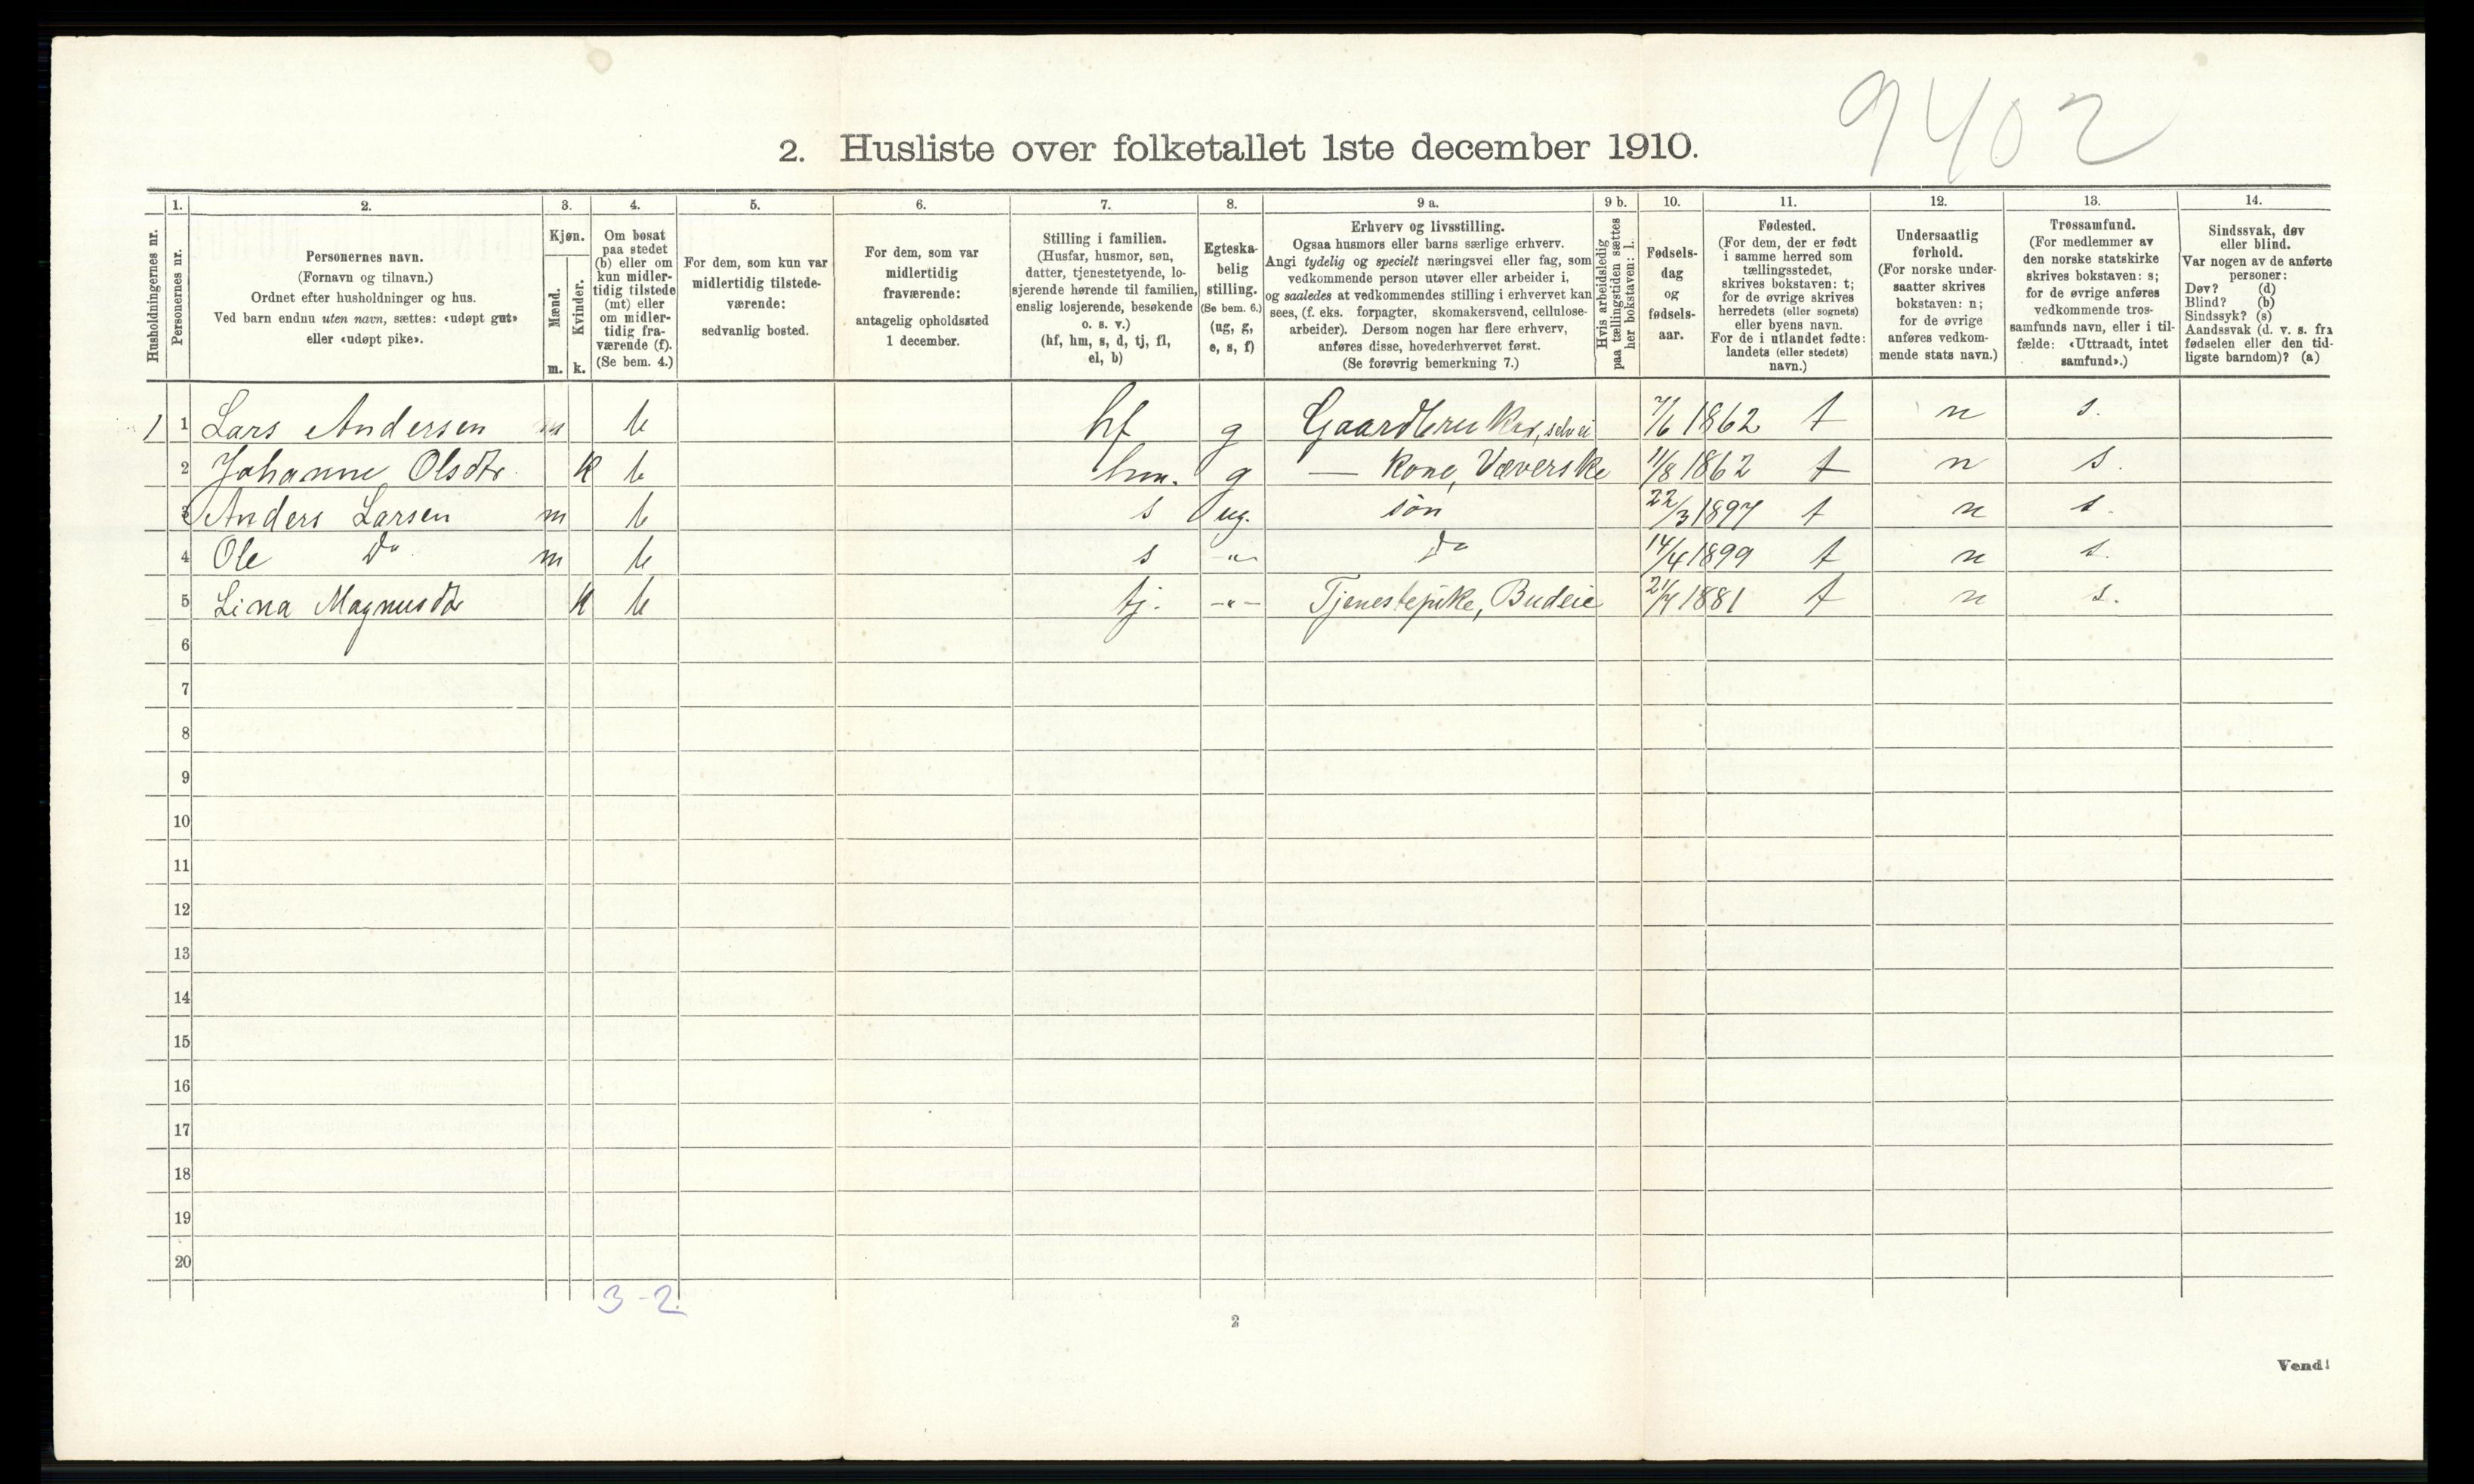 9402
2. Husliste over folketallet 1ste december 1910.
1. 2. 3. 4. 5. 6. 7. 8. 9 a. 9 b. 10. 11. 12. 13. 14.
Husholdningernes nr.
Personernes nr.
Personernes navn.
(Fornavn og tilnavn.)
Ordnet efter husholdninger og hus.
Ved barn endnu uten navn, sættes: «udøpt gut»
eller «udøpt pike».
Kjøn.
Mænd.
Kvinder.
m. k.
Om bosat
paa stedet
(b) eller om
kun midler-
tidig tilstede
(mt) eller
om midler-
tidig fra-
værende (f).
(Se bem. 4.)
For dem, som kun var
midlertidig tilstede-
værende:
sedvanlig bosted.
For dem, som var
midlertidig
fraværende:
antagelig opholdssted
1 december.
Stilling i familien.
(Husfar, husmor, søn,
datter, tjenestetyende, lo-
sjerende hørende til familien,
enslig losjerende, besøkende
o. s. v.)
(hf, hm, s, d, tj, fl,
el, b)
Egteska-
belig
stilling.
(Se bem. 6.)
(ug, g,
e, s, f)
Erhverv og livsstilling.
Ogsaa husmors eller barns særlige erhverv.
Angi tydelig og specielt næringsvei eller fag, som
vedkommende person utøver eller arbeider i,
og saaledes at vedkommendes stilling i erhvervet kan
sees, (f. eks. forpagter, skomakersvend, cellulose-
arbeider). Dersom nogen har flere erhverv,
anføres disse, hovederhvervet først.
(Se forøvrig bemerkning 7.)
Hvis arbeidsledig
paa tællingstiden sættes
her bokstaven: l.
Fødsels-
dag
og
fødsels-
aar.
Fødested.
(For dem, der er født
i samme herred som
tællingsstedet,
skrives bokstaven: t;
for de øvrige skrives
herredets (eller sognets)
eller byens navn.
For de i utlandet fødte:
landets (eller stedets)
navn.)
Undersaatlig
forhold.
(For norske under-
saatter skrives
bokstaven: n;
for de øvrige
anføres vedkom-
mende stats navn.)
Trossamfund.
(For medlemmer av
den norske statskirke
skrives bokstaven: s;
for de øvrige anføres
vedkommende tros-
samfunds navn, eller i til-
fælde: «Uttraadt, intet
samfund».)
Sindssvak, døv
eller blind.
Var nogen av de anførte
personer:
Døv? (d)
Blind? (b)
Sindssyk? (s)
Aandssvak (d. v. s. fra
fødselen eller den tid-
ligste barndom)? (a)
1 1 Lars Andersen m b hf g Gaardbruker, selvei 7/6 1862 t n s.
2 Johanne Olsdtr k b hm. g — kone, Væverske 11/8 1862 t n s.
3 Anders Larsen m b s ug. søn 22/3 1897 t n s.
4 Ole Do m b s -"- Do 14/4 1899 t n s.
5 Lina Magnusdtr k b tj. -"- Tjenestepike, Budeie 21/4 1881 t n s.
6
7
8
9
10
11
12
13
14
15
16
17
18
19
20
3-2.
2
Vend!